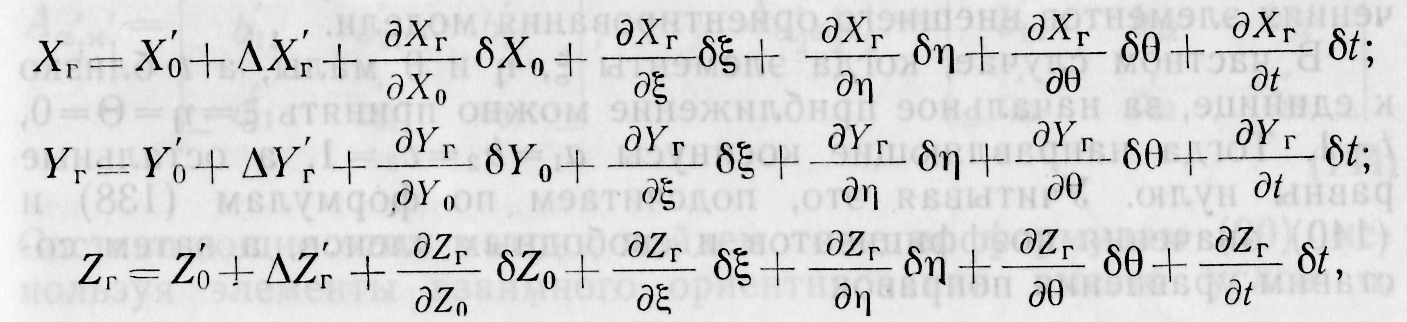 X_г = X'_0 + ΔX'_г + ∂X_г/∂X_0 δX_0 + ∂X_г/∂ξ δξ + ∂X_г/∂η δη + ∂X_г/∂θ δθ + ∂X_г/∂t δt;
Y_г = Y'_0 + ΔY'_г + ∂Y_г/∂Y_0 δY_0 + ∂Y_г/∂ξ δξ + ∂Y_г/∂η δη + ∂Y_г/∂θ δθ + ∂Y_г/∂t δt;
Z_г = Z'_0 + ΔZ'_г + ∂Z_г/∂Z_0 δZ_0 + ∂Z_г/∂ξ δξ + ∂Z_г/∂η δη + ∂Z_г/∂θ δθ + ∂Z_г/∂t δt,